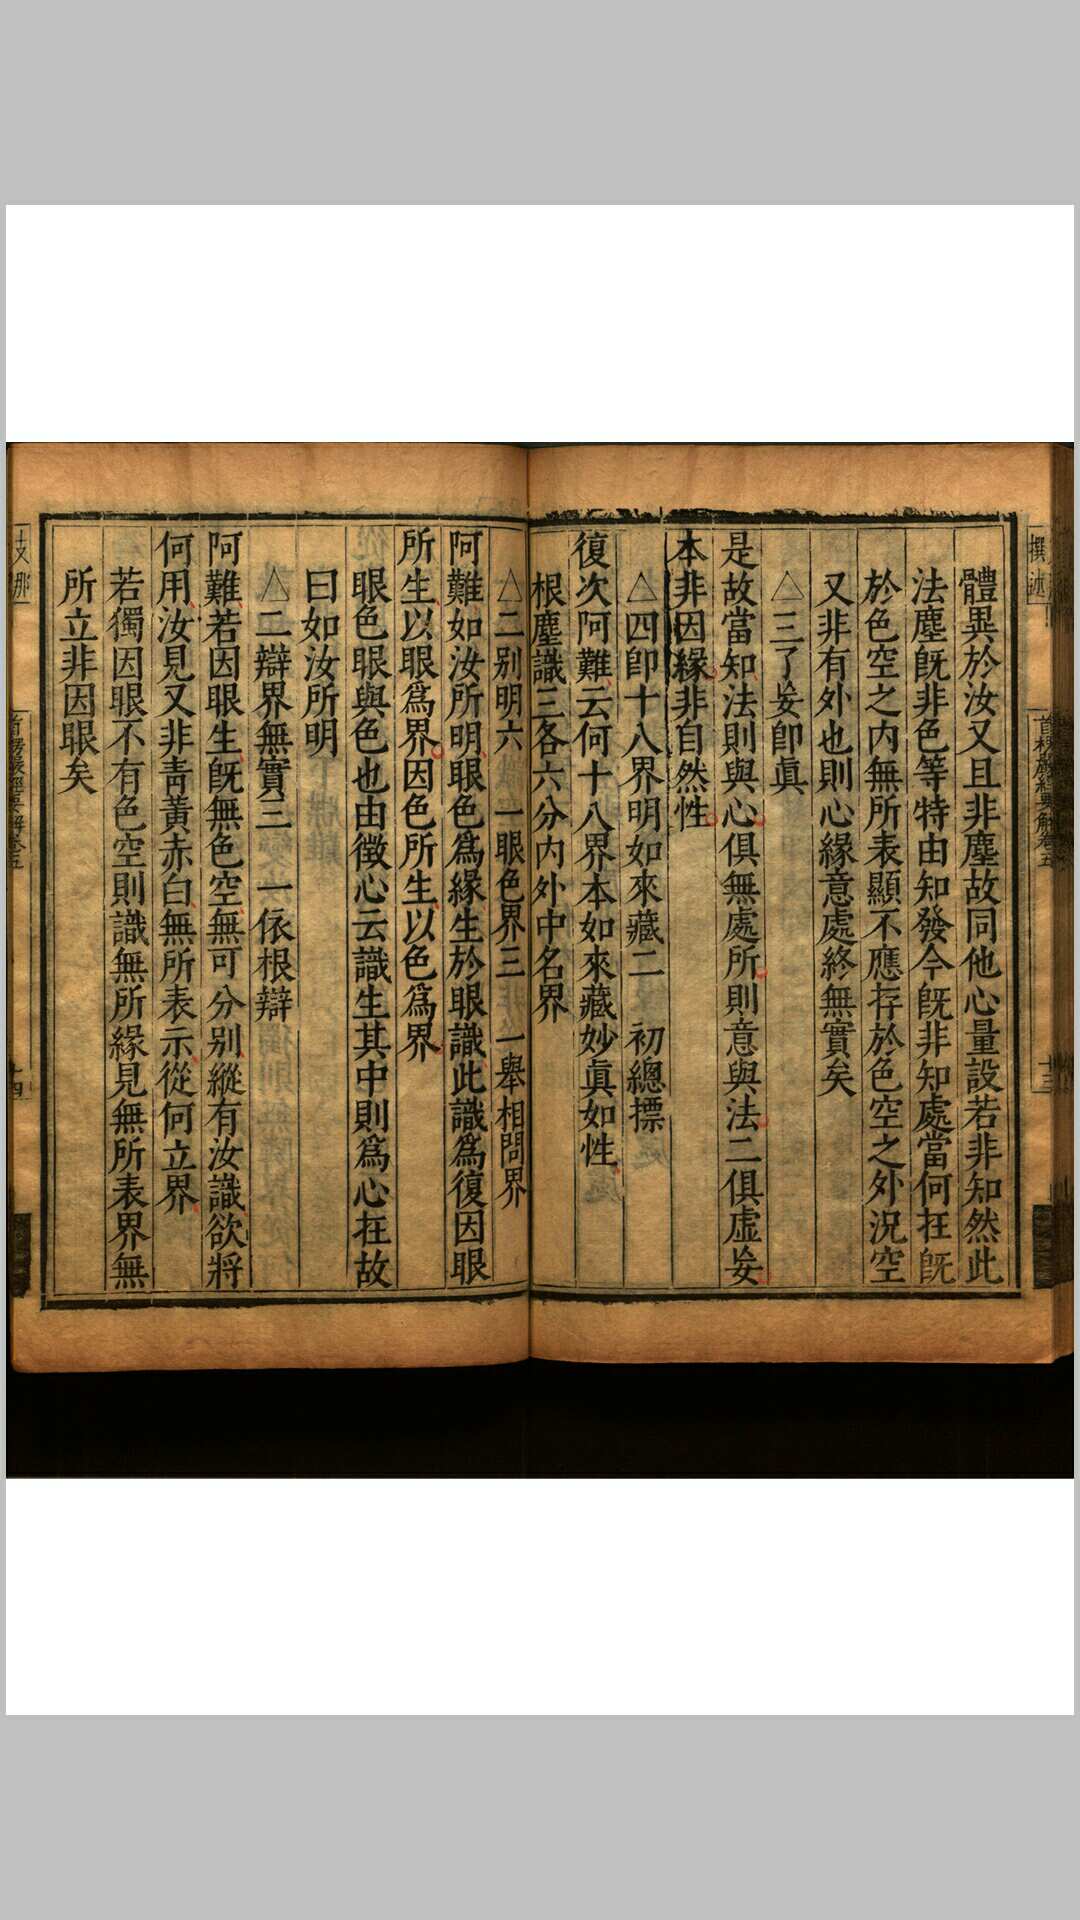 撰述
首楞嚴經要解卷五
十三
體異於汝又且非塵故同他心量設若非知然此
法塵旣非色等特由知發今旣非知處當何在旣
於色空之內無所表顯不應存於色空之外況空
又非有外也則心緣意處終無實矣
△三了妄卽眞
是故當知法則與心俱無處所則意與法二俱虛妄
本非因緣非自然性
△四卽十八界明如來藏二 初總標
復次阿難云何十八界本如來藏妙眞如性
根塵識三各六分內外中名界
△二別明六 一眼色界三 一舉相問界
阿難如汝所明眼色爲緣生於眼識此識爲復因眼
所生以眼爲界因色所生以色爲界
眼色眼與色也由徵心云識生其中則爲心在故
曰如汝所明
△二辯界無實三 一依根辯
阿難若因眼生旣無色空無可分別縱有汝識欲將
何用汝見又非靑黃赤白無所表示從何立界
若獨因眼不有色空則識無所緣見無所表界無
所立非因眼矣
首楞嚴經要解卷五
十四